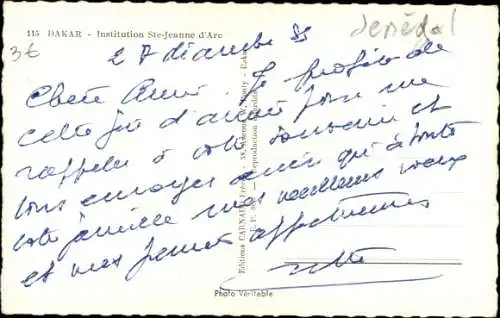 115 DAKAR - Institution Ste-Jeanne d'Arc
Senégal
3€
27 décembre 55
Chère Amie. Je profite de
cette fin d'année pour me
rappeler à votre souvenir et
vous envoyer ainsi qu'à toute
votre famille mes meilleurs vœux
et mes pensées affectueuses
Photo Véritable